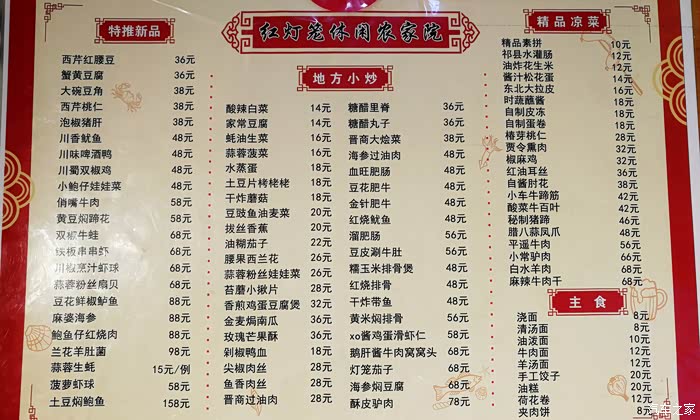 红灯笼休闲农家院
特推新品
西芹红腰豆 36元
蟹黄豆腐 36元
大碗豆角 38元
西芹桃仁 38元
泡椒猪肝 38元
川香鱿鱼 48元
川味啤酒鸭 48元
川蜀双椒鸡 48元
小鲍仔娃娃菜 48元
俏嘴牛肉 58元
黄豆焖蹄花 58元
双椒牛蛙 68元
铁板串串虾 68元
川椒烹汁虾球 68元
蒜蓉粉丝扇贝 68元
豆花鲜椒鲈鱼 88元
麻婆海参 88元
鲍鱼仔红烧肉 88元
兰花羊肚菌 98元
蒜蓉生蚝 15元/例
菠萝虾球 58元
土豆焖鲍鱼 158元
地方小炒
酸辣白菜 14元
家常豆腐 14元
蚝油生菜 16元
蒜蓉菠菜 16元
水蒸蛋 18元
土豆片栲栳栳 18元
干炸蘑菇 18元
豆豉鱼油麦菜 20元
拔丝香蕉 20元
油糊茄子 22元
腰果西兰花 26元
蒜蓉粉丝娃娃菜 26元
苔蘑小揪片 28元
香煎鸡蛋豆腐煲 32元
金麦焗南瓜 36元
玫瑰芒果酥 36元
剁椒鸭血 18元
尖椒肉丝 28元
鱼香肉丝 28元
晋商过油肉 28元
糖醋里脊 36元
糖醋丸子 36元
晋商大烩菜 38元
海参过油肉 48元
血旺肥肠 48元
豆花肥牛 48元
金针肥牛 48元
红烧鱿鱼 48元
溜肥肠 56元
豆皮涮牛肚 56元
糯玉米排骨煲 48元
红烧排骨 48元
干炸带鱼 48元
黄米焖排骨 56元
xo酱鸡蛋滑虾仁 58元
鹅肝酱牛肉窝窝头 68元
灯笼茄子 68元
海参焖豆腐 68元
酥皮驴肉 78元
精品凉菜
精品素拼 10元
祁县水灌肠 12元
油炸花生米 12元
酱汁松花蛋 14元
东北大拉皮 16元
时蔬蘸酱 18元
自制皮冻 18元
自制蛋卷 18元
椿芽桃仁 28元
贾令熏肉 32元
椒麻鸡 32元
红油耳丝 36元
自酱肘花 38元
小车牛蹄筋 42元
酸菜牛百叶 42元
秘制猪蹄 46元
腊八蒜凤爪 48元
平遥牛肉 56元
小常驴肉 66元
白水羊肉 68元
麻辣牛肉干 68元
主食
浇面 8元
清汤面 8元
油泼面 10元
牛肉面 12元
羊汤面 12元
手工饺子 20元
油糕 20元
荷花卷 12元
夹肉饼 8元